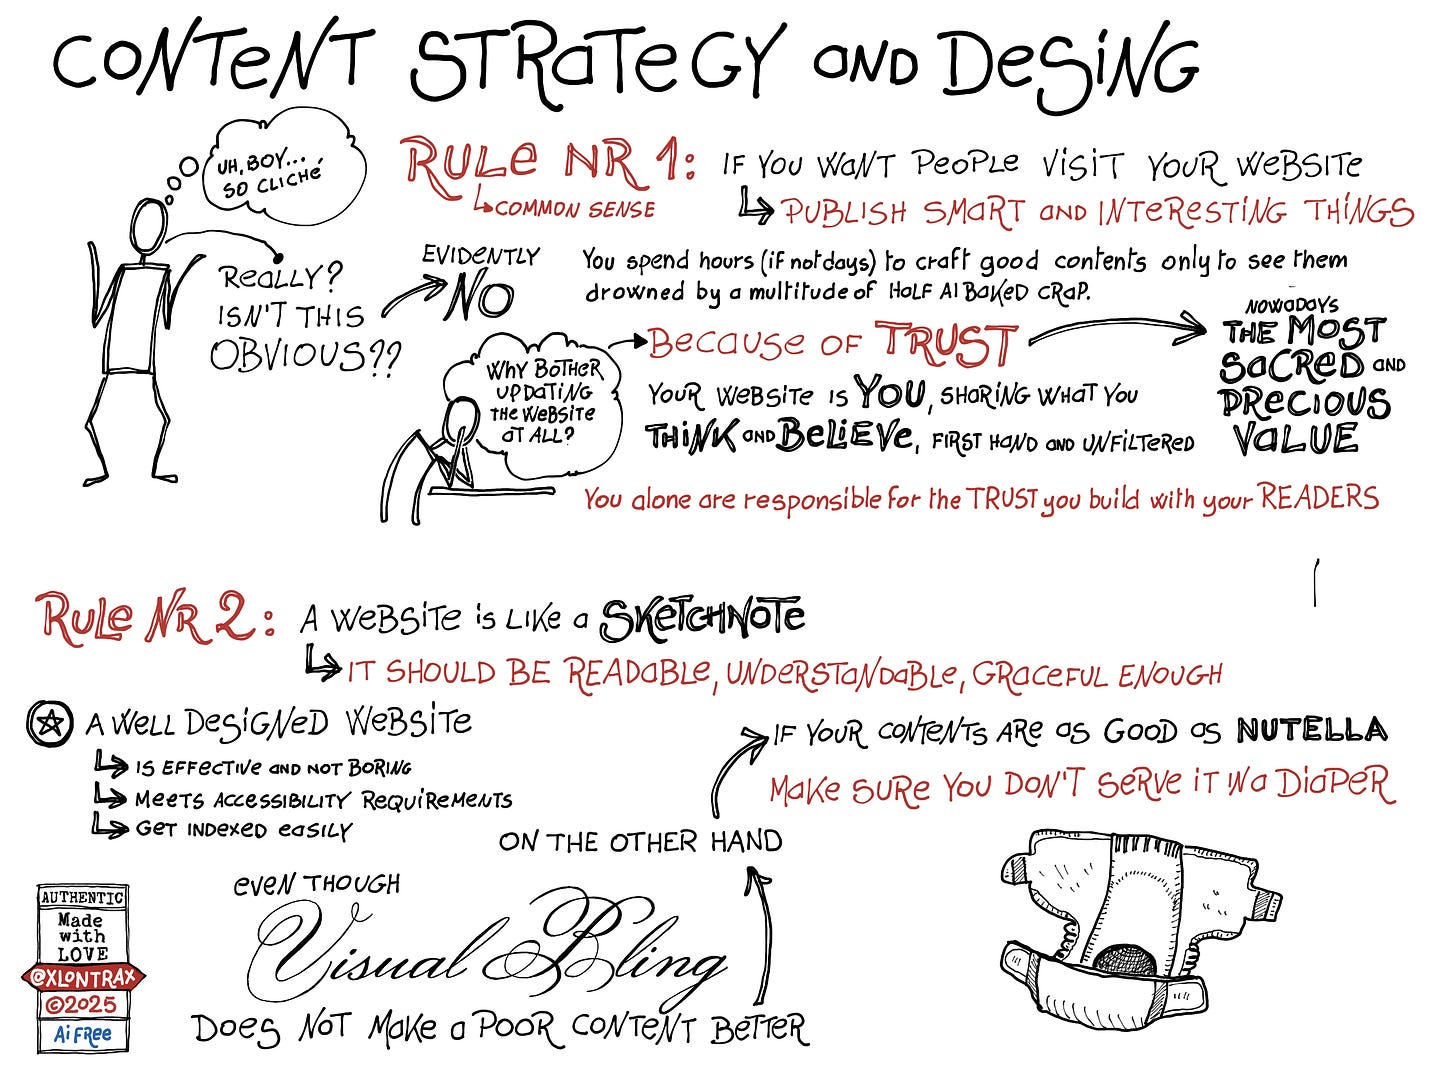 CONTENT STRATEGY AND DESING
UH, BOY...
SO CLICHÉ
REALLY?
ISN'T THIS
OBVIOUS??
EVIDENTLY
NO
RULE NR 1:
COMMON SENSE
IF YOU WANT PEOPLE VISIT YOUR WEBSITE
PUBLISH SMART AND INTERESTING THINGS
You spend hours (if not days) to craft good contents only to see them
drowned by a multitude of HALF AI BAKED CRAP.
WHY BOTHER
UPDATING
THE WEBSITE
AT ALL?
BECAUSE OF TRUST
NOWADAYS
THE MOST
SACRED AND
PRECIOUS
VALUE
YOUR WEBSITE IS YOU, SHARING WHAT YOU
THINK AND BELIEVE, FIRST HAND AND UNFILTERED
You alone are responsible for the TRUST you build with your READERS
RULE NR 2:
A WEBSITE IS LIKE A SKETCHNOTE
IT SHOULD BE READABLE, UNDERSTANDABLE, GRACEFUL ENOUGH
A WELL DESIGNED WEBSITE
IS EFFECTIVE AND NOT BORING
MEETS ACCESSIBILITY REQUIREMENTS
GET INDEXED EASILY
EVEN THOUGH
Visual Bling
DOES NOT MAKE A POOR CONTENT BETTER
ON THE OTHER HAND
IF YOUR CONTENTS ARE AS GOOD AS NUTELLA
MAKE SURE YOU DON'T SERVE IT IN A DIAPER
AUTHENTIC
Made
with
LOVE
@XLONTRAX
©2025
Ai FREE